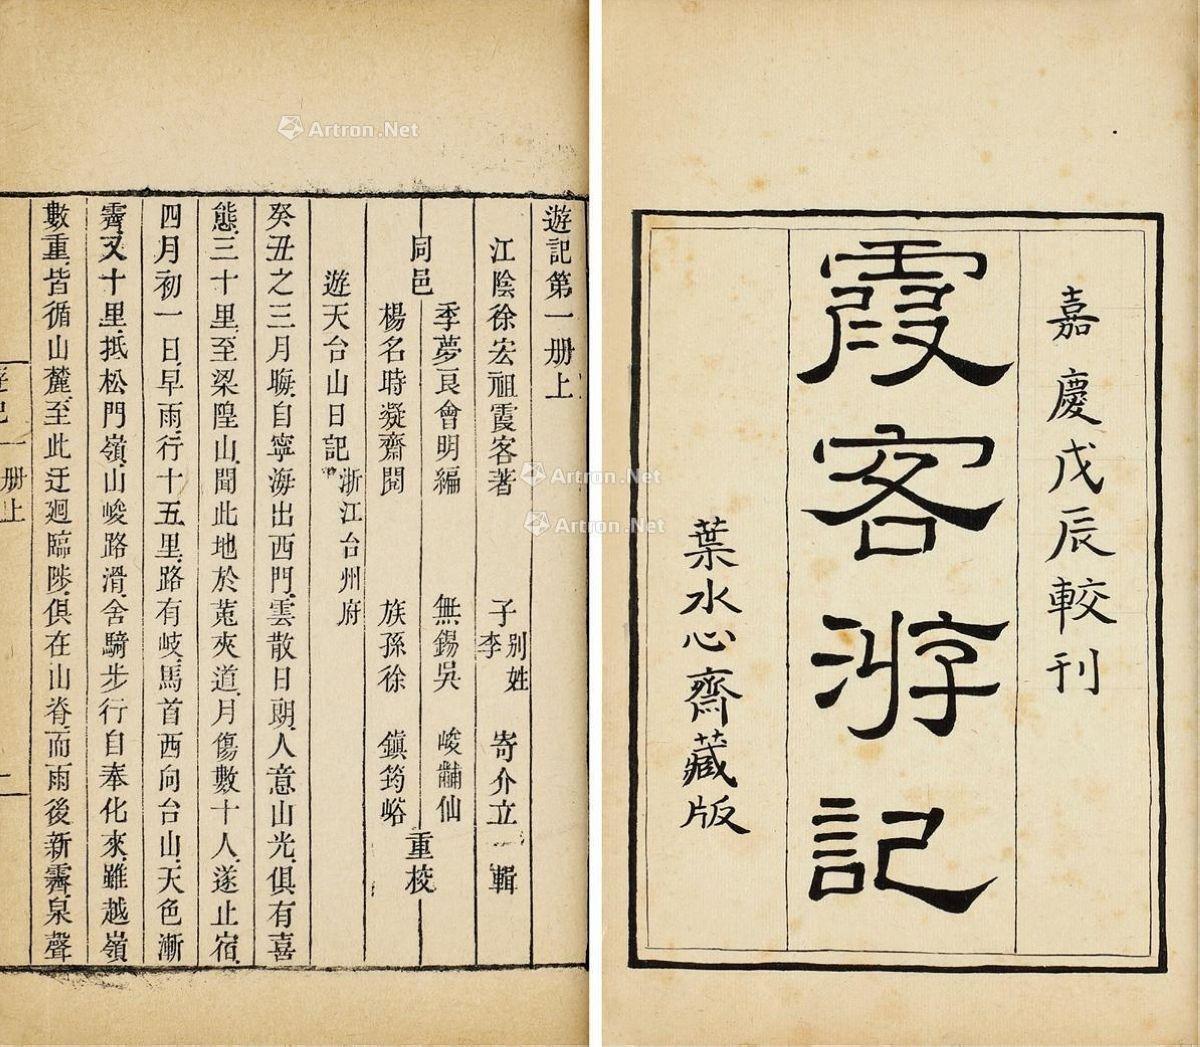 嘉慶戊辰較刊
霞客游記
葉水心齋藏版
遊記第一册上
江陰徐宏祖霞客著 子李别姓寄介立輯
同邑季夢良會明編 無錫吳峻黼仙
楊名時凝齋閱 族孫徐鎮筠峪
重校
遊天台山日記浙江台州府
癸丑之三月晦,自寧海出西門,雲散日朗,人意山光,俱有喜
態,三十里,至梁隍山,聞此地於菟夾道,月傷數十人,遂止宿,
四月初一日,早雨,行十五里,路有岐,馬首西向台山,天色漸
霽,又十里,抵松門嶺,山峻路滑,舍騎步行,自奉化來,雖越嶺
數重,皆循山麓,至此迂迴臨陟,俱在山脊,而雨後新霽,泉聲
遊記一册上
一
Artron.Net
Artron.Net
Artron.Net